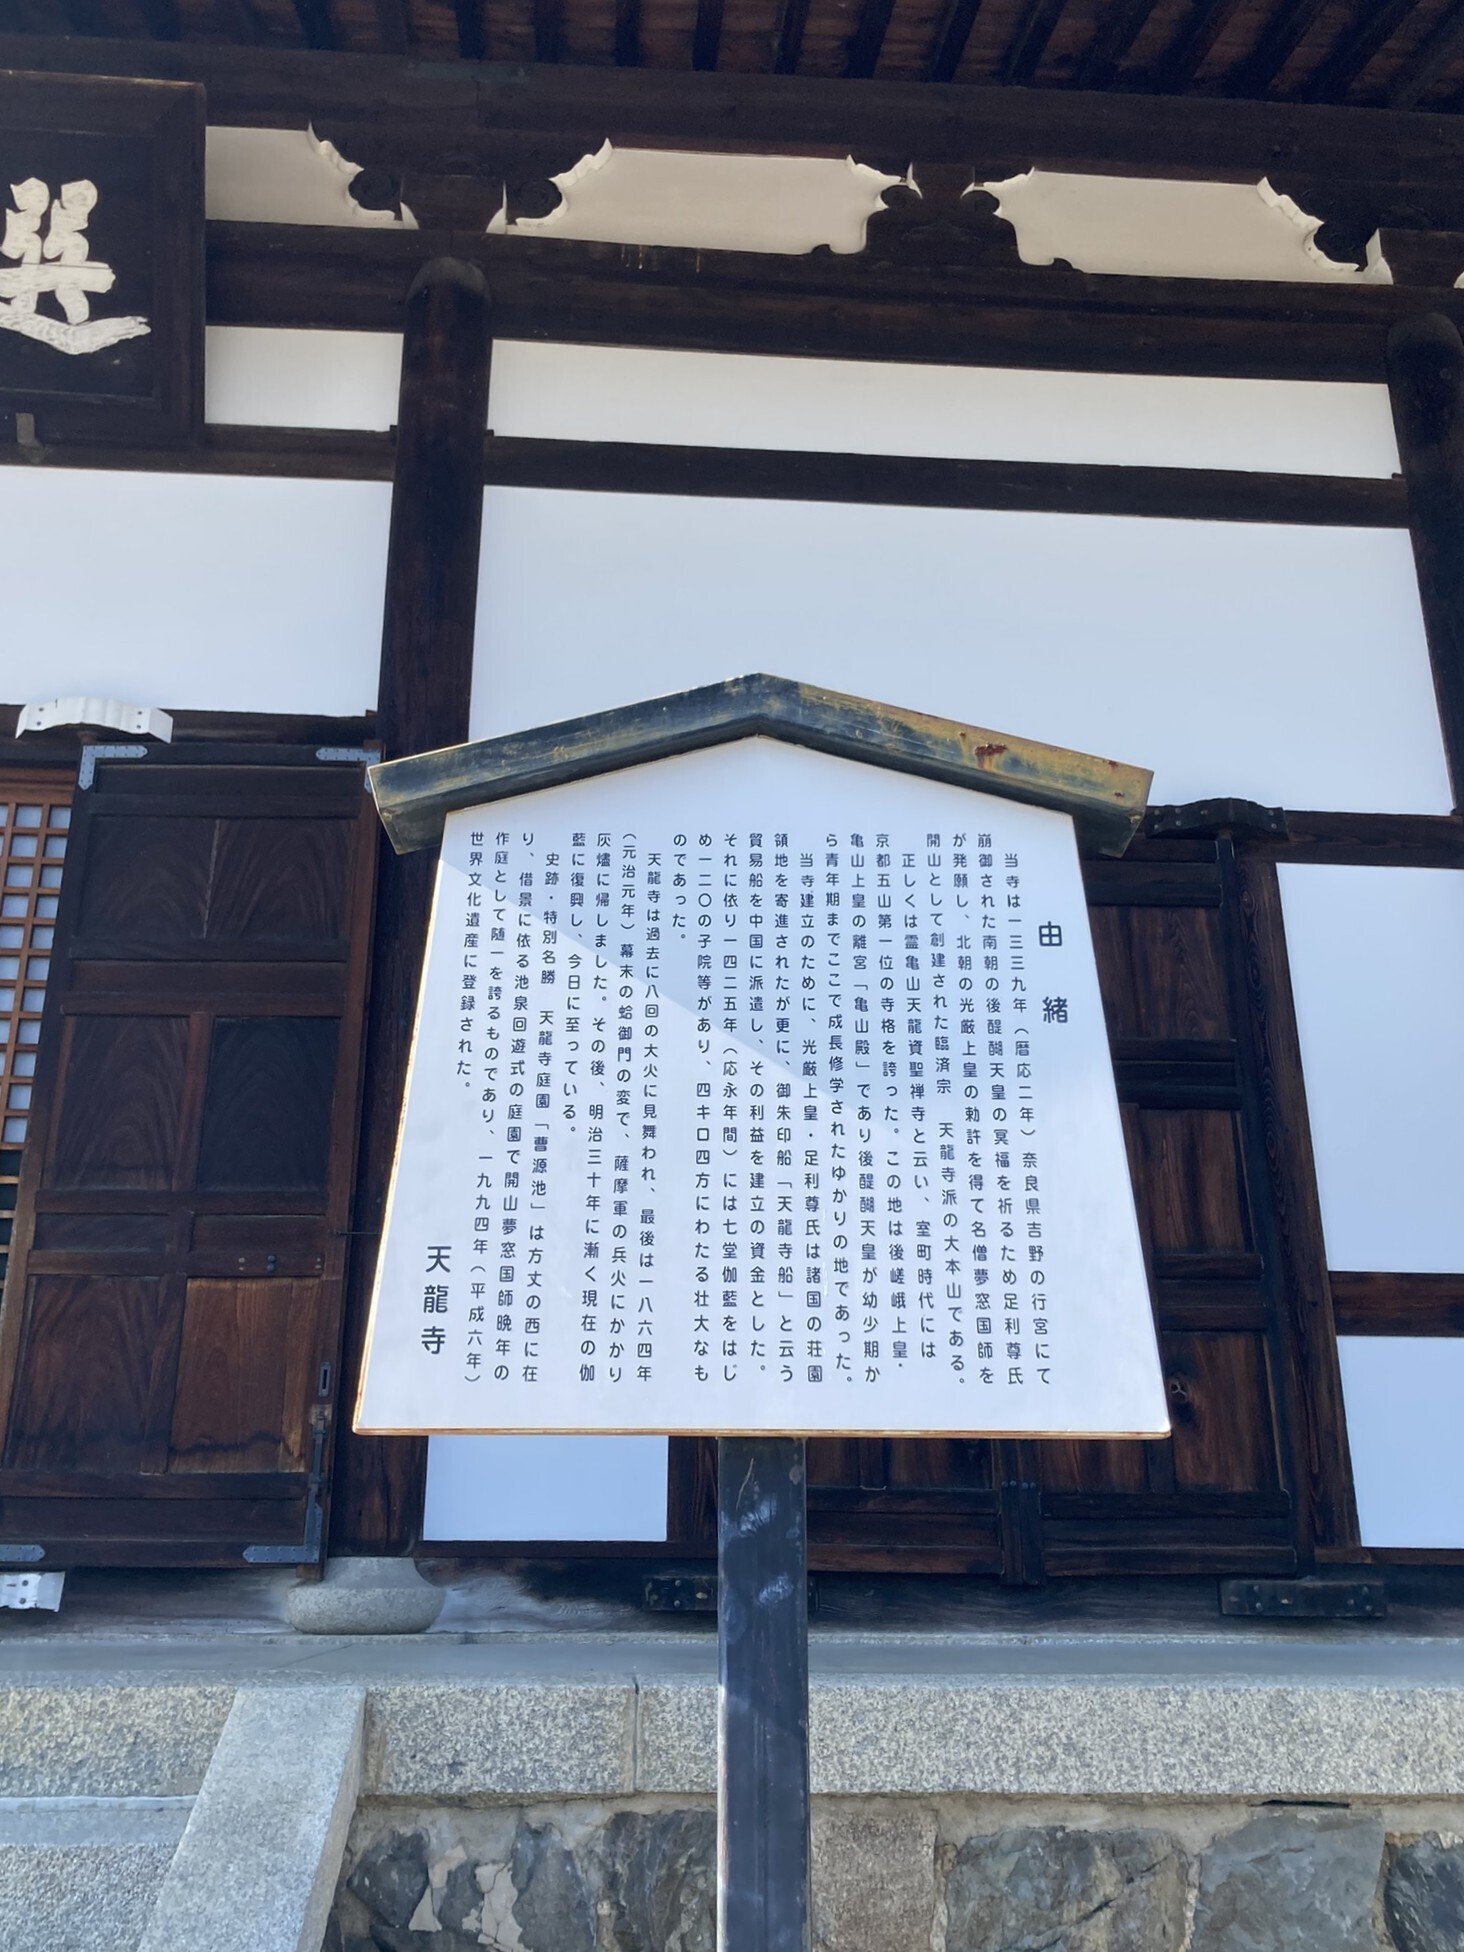 由緒
当寺は一三三九年（暦応二年）奈良県吉野の行宮にて
崩御された南朝の後醍醐天皇の冥福を祈るため足利尊氏
が発願し、北朝の光厳上皇の勅許を得て名僧夢窓国師を
開山として創建された臨済宗　天龍寺派の大本山である。
正しくは霊亀山天龍資聖禅寺と云い、室町時代には
京都五山第一位の寺格を誇った。この地は後嵯峨上皇・
亀山上皇の離宮「亀山殿」であり後醍醐天皇が幼少期か
ら青年期までここで成長修学されたゆかりの地であった。
当寺建立のために、光厳上皇・足利尊氏は諸国の荘園
領地を寄進されたが更に、御朱印船「天龍寺船」と云う
貿易船を中国に派遣し、その利益を建立の資金とした。
それに依り一四二五年（応永年間）には七堂伽藍をはじ
め一二〇の子院等があり、四キロ四方にわたる壮大なも
のであった。
天龍寺は過去に八回の大火に見舞われ、最後は一八六四年
（元治元年）幕末の蛤御門の変で、薩摩軍の兵火にかかり
灰燼に帰しました。その後、明治三十年に漸く現在の伽
藍に復興し、今日に至っている。
史跡・特別名勝　天龍寺庭園「曹源池」は方丈の西に在
り、借景に依る池泉回遊式の庭園で開山夢窓国師晩年の
作庭として随一を誇るものであり、一九九四年（平成六年）
世界文化遺産に登録された。
天龍寺
選